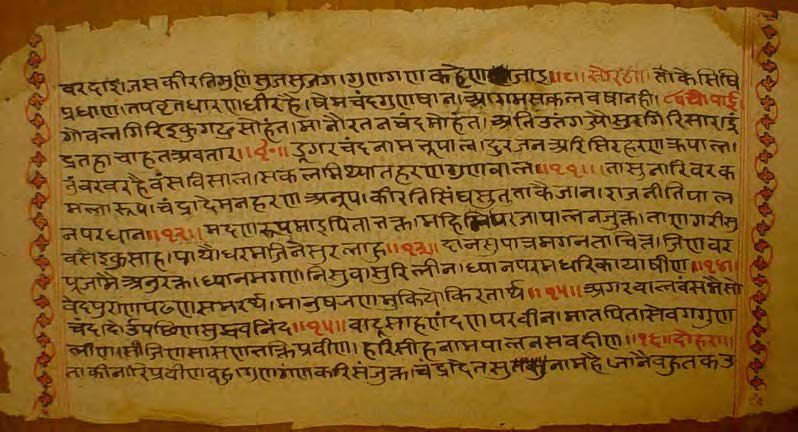 वरदाइ।जसकीरतिगुण सुजसुजग।गुणगण कहेण जाइ॥८॥सोरठा॥ताके सिषि
प्रधाण।तपवृतधारणधीरहै।षेमचंदगुणषान।आगमसकलवषानही।८।चौपाई
गोवलगिरिइकुगढसोहंत।मानौरतनचंदमोहंत।अतिउतंग सुरगिरिसार।इं
द्रतहाचाहतअवतार॥१०॥डूगरचंदनामनृपाल।दुरजनअरिसिरहरणकृपाल।
तंवरवरहैवंसविसाल।सकलमिथ्यातहरणगुणवाल॥११॥तासुनारिवरक
मलारूपा।चंद्रादेमनहरणअनूपा।कीरतिसिंघसुतताकैजान।राजनीतिपाल
नपरधान॥१२॥मदणरूपमाइपिताभक्त।महि परजापालनजुक्त।ताणगरीमु
वसैइकुसाह।पायौधरमजिनैसुरलाह॥१३॥दानसुपात्रमगनताचित्त।जिणवर
पूजामैअनुरक्त।ध्यानमगणनिसुवासुरिलीन।ध्यानपरमधरिकायाषीण॥१४॥
वेदपुराणपढणसमरथ।मानुषजणमुकियोकिरतार्थ॥१५॥अगरवालवंसभैसो
चंद। पछिण ॥१५॥वादूसाहणंदणपरवीना।मातपितासेवगगुण
लीण।सीजिणसासणभक्तिप्रवीण।हरिसीहनामपालनसवदीण॥१६॥दोहरा॥
ताकीनारिप्रवीणवहु।गुणगणकरिसंजुक्त।चंद्रादेत नामहै।जानैवहुतकउ